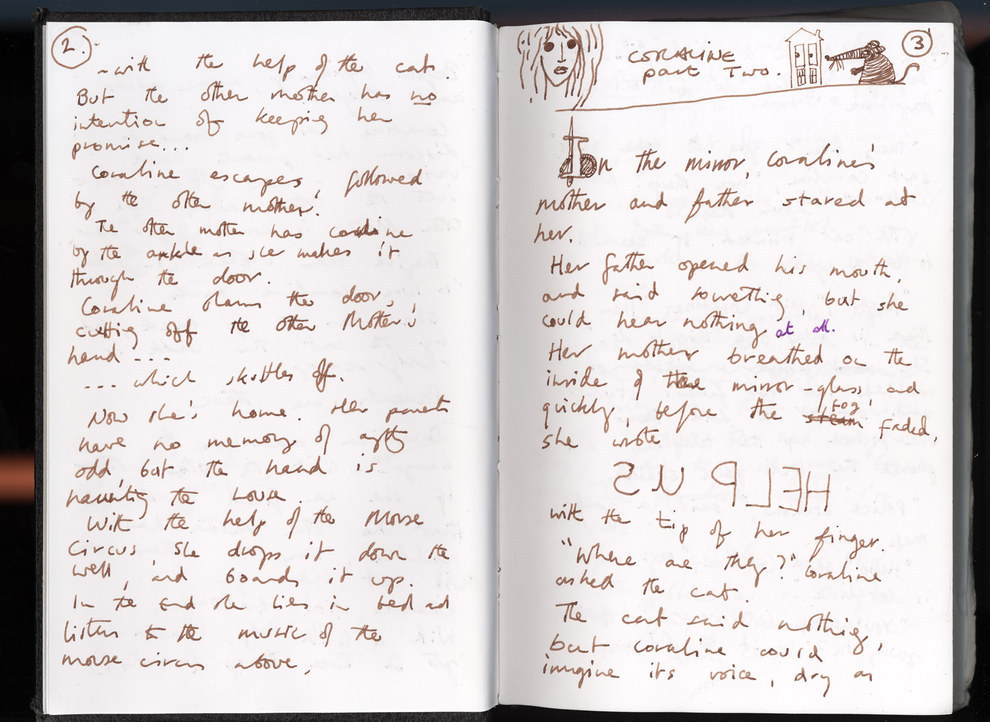 2.
- with the help of the cat.
But the other mother has no
intention of keeping her
promise...
Coraline escapes, followed
by the other mother.
The other mother has Coraline
by the ankle as she makes it
through the door.
Coraline slams the door,
cutting off the other Mother's
hand ---
... which skittles off.
Now she's home. Her parents
have no memory of anything
odd, but the hand is
haunting the house.
With the help of the Mouse
Circus she drops it down the
well, and boards it up.
In the end she lies in bed and
listens to the music of the
mouse circus above,
3
CORALINE
part Two.
In the mirror, Coraline's
mother and father stared at
her.
Her father opened his mouth
and said something, but she
could hear nothing at all.
Her mother breathed on the
inside of the mirror-glass and
quickly, before the steam fog, faded,
she wrote
HELP US
with the tip of her finger.
"Where are they?" Coraline
asked the cat.
The cat said nothing,
but Coraline could
imagine its voice, dry as